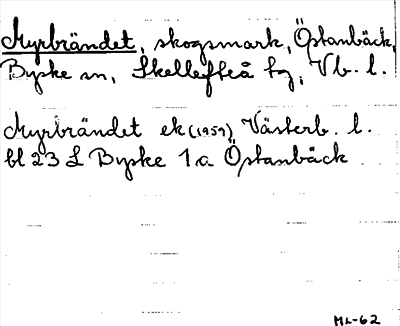 Myrbrändet, skogsmark, Östanbäck,
Byske sn, Skellefteå tg, Vb. l.
Myrbrändet ek (1959) Västerb. l.
bl 23 L Byske 1a Östanbäck
ML-62